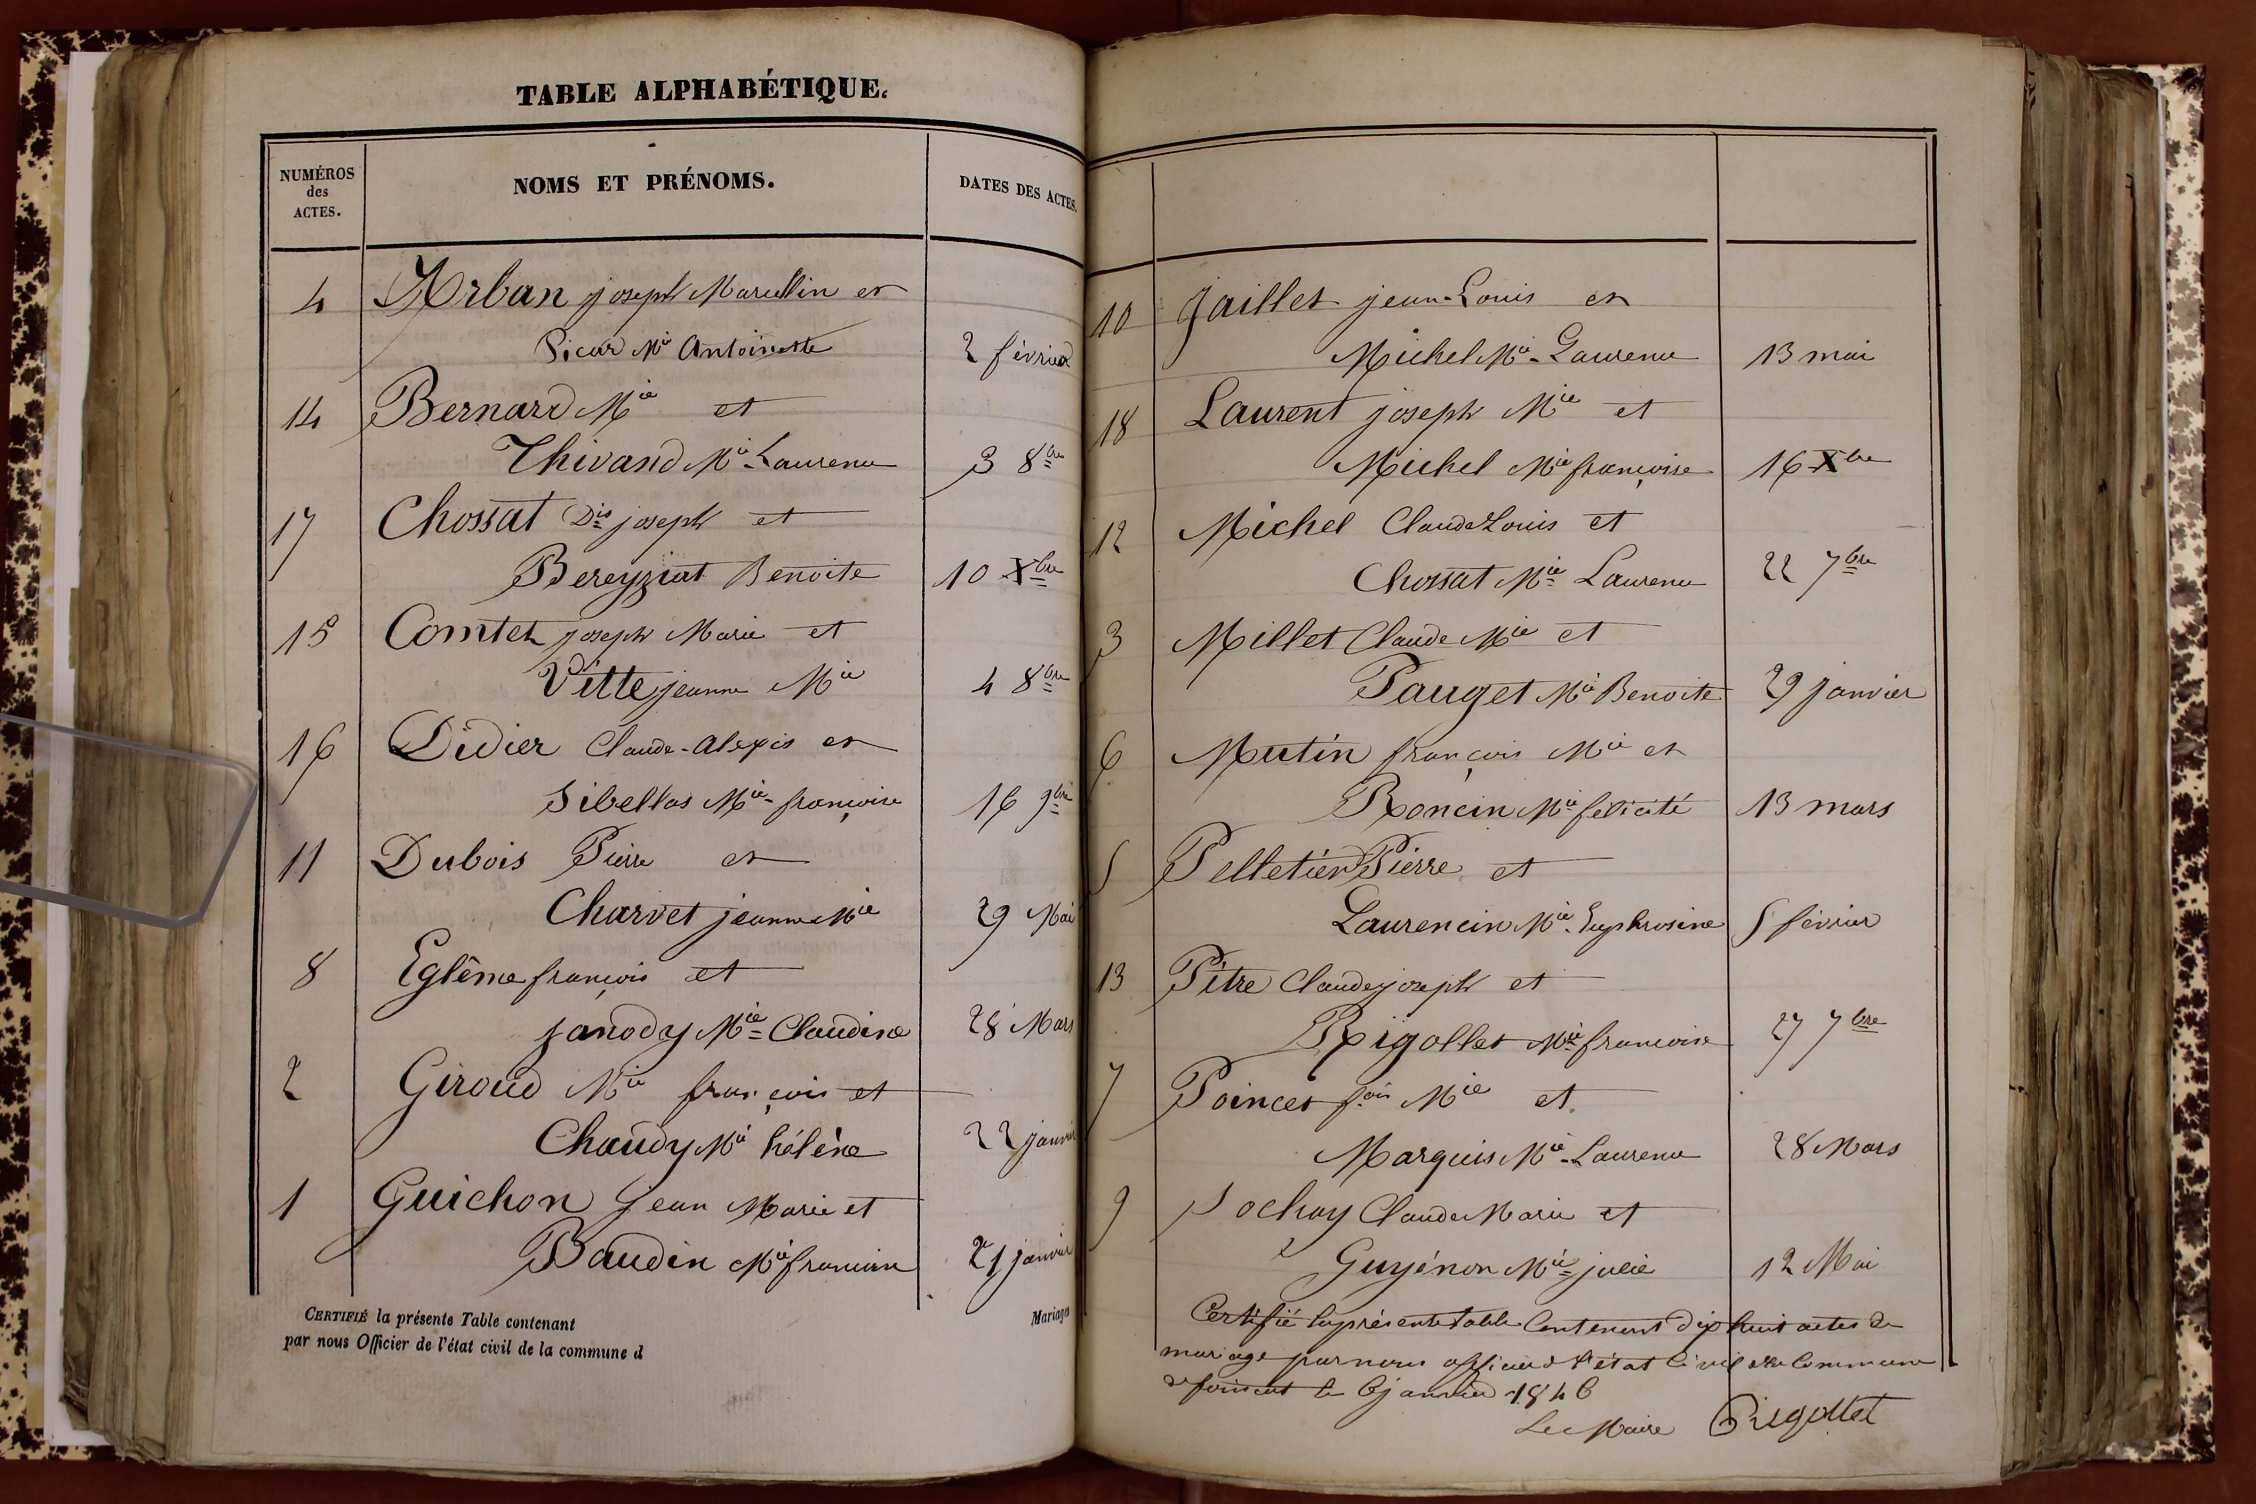 TABLE ALPHABÉTIQUE.
NUMÉROS
des
ACTES.
NOMS ET PRÉNOMS.
DATES DES ACTES.
4 Arban joseph Marcellin et
Picard Mie Antoinette 2 février
14 Bernard Mie et
Thivand Mie Laurence 3 8bre
17 Chossat Dis joseph et
Bereyziat Benoite 10 Xbre
15 Comtet joseph Marie et
Vitte jeanne Mie 4 8bre
16 Didier Claude-Alexis et
Sibellas Mie françoise 16 9bre
11 Dubois Pierre et
Charvet jeanne Mie 29 Mai
8 Eglême françois et
janody Mie Claudine 28 Mars
2 Giroud Mie françois et
Chaudy Mie hélène 22 janvier
1 Guichon Jean Marie et
Baudin Mie françoise 21 janvier
CERTIFIÉ la présente Table contenant
Mariages
par nous Officier de l'état civil de la commune d
10 Jaillet jean-Louis et
Michel Mie Laurence 13 mai
18 Laurent joseph Mie et
Michel Mie françoise 16 Xbre
12 Michel Claude Louis et
Chossat Mie Laurence 22 7bre
3 Millet Claude Mie et
Pauget Mie Benoite 29 janvier
6 Mutin françois Mie et
Roncin Mie félicité 13 mars
5 Pelletier Pierre et
Laurencin Mie Euphrosine 5 février
13 Pitre Claude joseph et
Rigollet Mie françoise 27 7bre
7 Poincet fois Mie et
Marguis Mie Laurence 28 Mars
9 Sochay Claude Marie et
Guyénon Mie julie 12 Mai
Certifié la présente table Contenant dix huit actes de
mariage par nous officier d l'état Civil de la Commune
de foissiat le 6 janvier 1846
Le Maire Rigollet